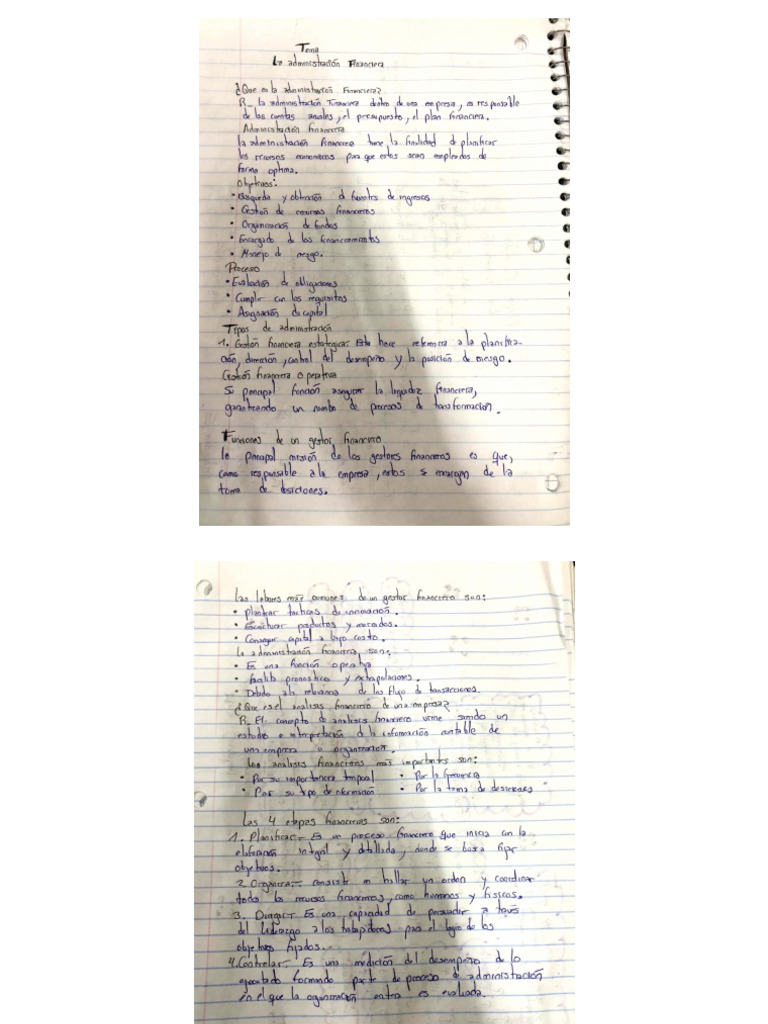 Tema
La administración Financiera
¿Que es la administración Financiera?
R_ La administración Financiera dentro de una empresa, es responsable
de las cuentas anuales, el presupuesto, el plan financiero.
Administración financiera
la administración financiera tiene la finalidad de planificar
los recursos economicos para que estos sean empleados de
forma optima.
Objetivos:
• Busqueda y obtención d fuentes de ingresos
• Gestión de recursos financieros
• Organización de fondos
• Encargado de los financiamientos
• Manejo de riesgo.
Proceso
• Evaluación de obligaciones
• Cumplir con los requisitos
• Asignación de capital
Tipos de administración
1. Gestión financiera estrategica: Esta hace referencia a la planifica
ción, dirección, control del desempeño y la posición de riesgo.
Gestión financiera operativa
Su principal función asegurar la liquidez financiera,
garantizando un numero de procesos de transformación.
Funciones de un gestor financiero
la principal misión de los gestores financieros es que,
como responsable a la empresa, estos se encargan de la
toma de desiciones.
Las labores más comunes de un gestor financiero son:
• Planificar tacticas de innovación.
• Estructurar productos y mercados.
• Conseguir capital a bajo costo.
la administración financiera, son:
• Es una función operativa
• facilita pronostico y extrapolaciones.
• Debido a la relevancia de los flujo de transacciones.
¿Que es el analisis financiero de una empresa?
R. El concepto de analisis financiero viene siendo un
estudio e interpretación d la información contable de
una empresa u organización.
Los analisis financieros más importantes son:
• Por su importancia temporal • Por la frecuencia
• Por su tipo de información • Por la toma de desiciones
Las 4 etapas financieras son:
1. Planificar.- Es un proceso financiero que inicia con la
elaboración integral y detallada, donde se busca fijar
objetivos.
2. Organizar.- consiste en hallar un orden y coordinar
todo los recursos financieros, como humanos y fisicos.
3. Dirigir.- Es una capacidad de persuadir a traves
del liderazgo a los trabajadores para el logro de los
objetivos fijados.
4. Controlar.- Es una medición del desempeño de lo
ejecutado formando parte de proceso d administración
en el que la organización entra es evaluada.